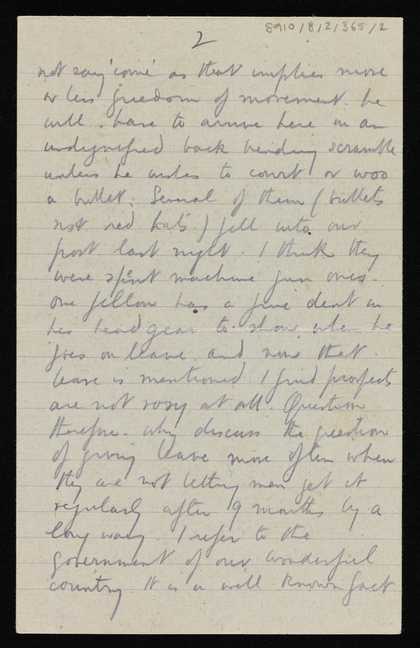 8910/8/2/365/2
2
not say 'come' as that implies more
or less freedom of movement. he
will have to arrive here in an
undignified back bending scramble
unless he wishes to court or woo
a bullet. Several of them (bullets
not red hats) fell into our
post last night. I think they
were spent machine gun ones.
One fellow has a fine dent in
his head gear to show when he
goes on leave and now that
leave is mentioned I find prospects
are not rosy at all. Question
therefore. why discuss the question
of giving leave more often when
they are not letting men get it
regularly after 9 months by a
long way. I refer to the
government of our wonderful
country It is a well known fact